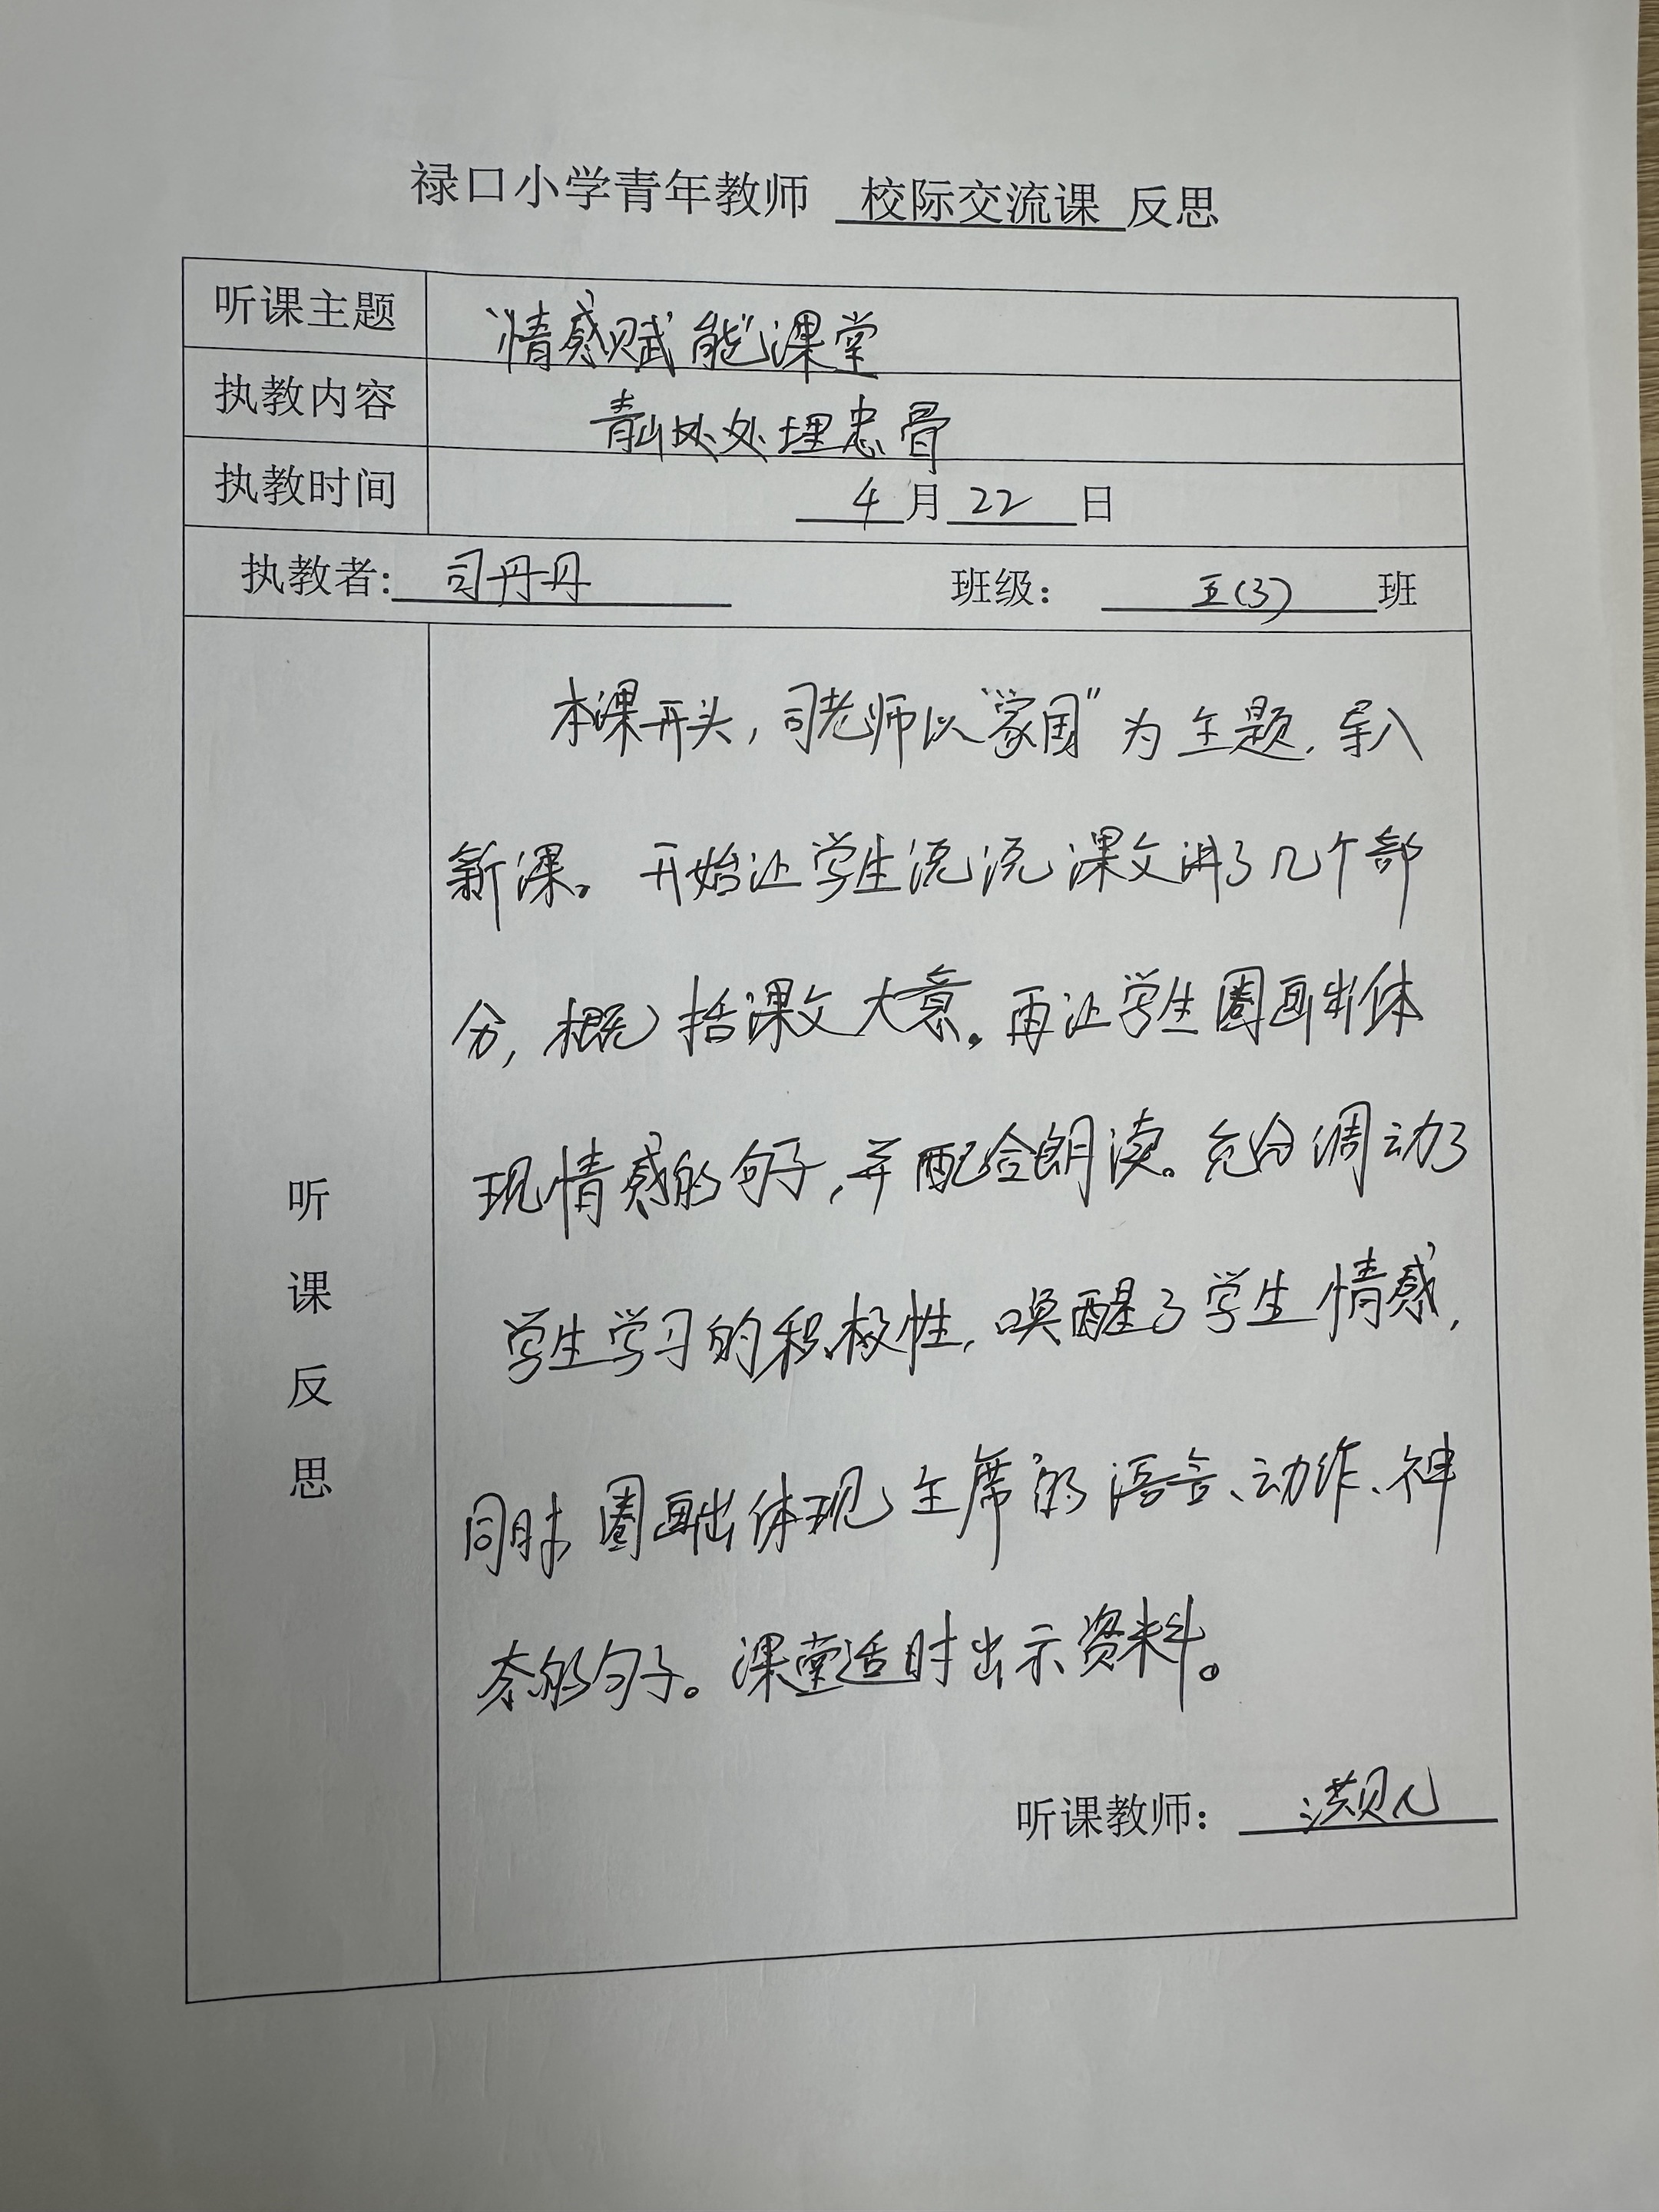 禄口小学青年教师 校际交流课 反思
听课主题 “情感赋能”课堂
执教内容 青山处处埋忠骨
执教时间 4月22日
执教者: 司丹丹 班级: 五(3)班
听课反思
本课开头,司老师以“家国”为主题,导入
新课。开始让学生说说课文讲了几个部
分,概括课文大意。再让学生圈画出体
现情感的句子,并配合朗读。充分调动了
学生学习的积极性,唤醒了学生情感,
同时圈画出体现主席的语言、动作、神
态的句子。课堂适时出示资料。
听课教师: 洪贝儿